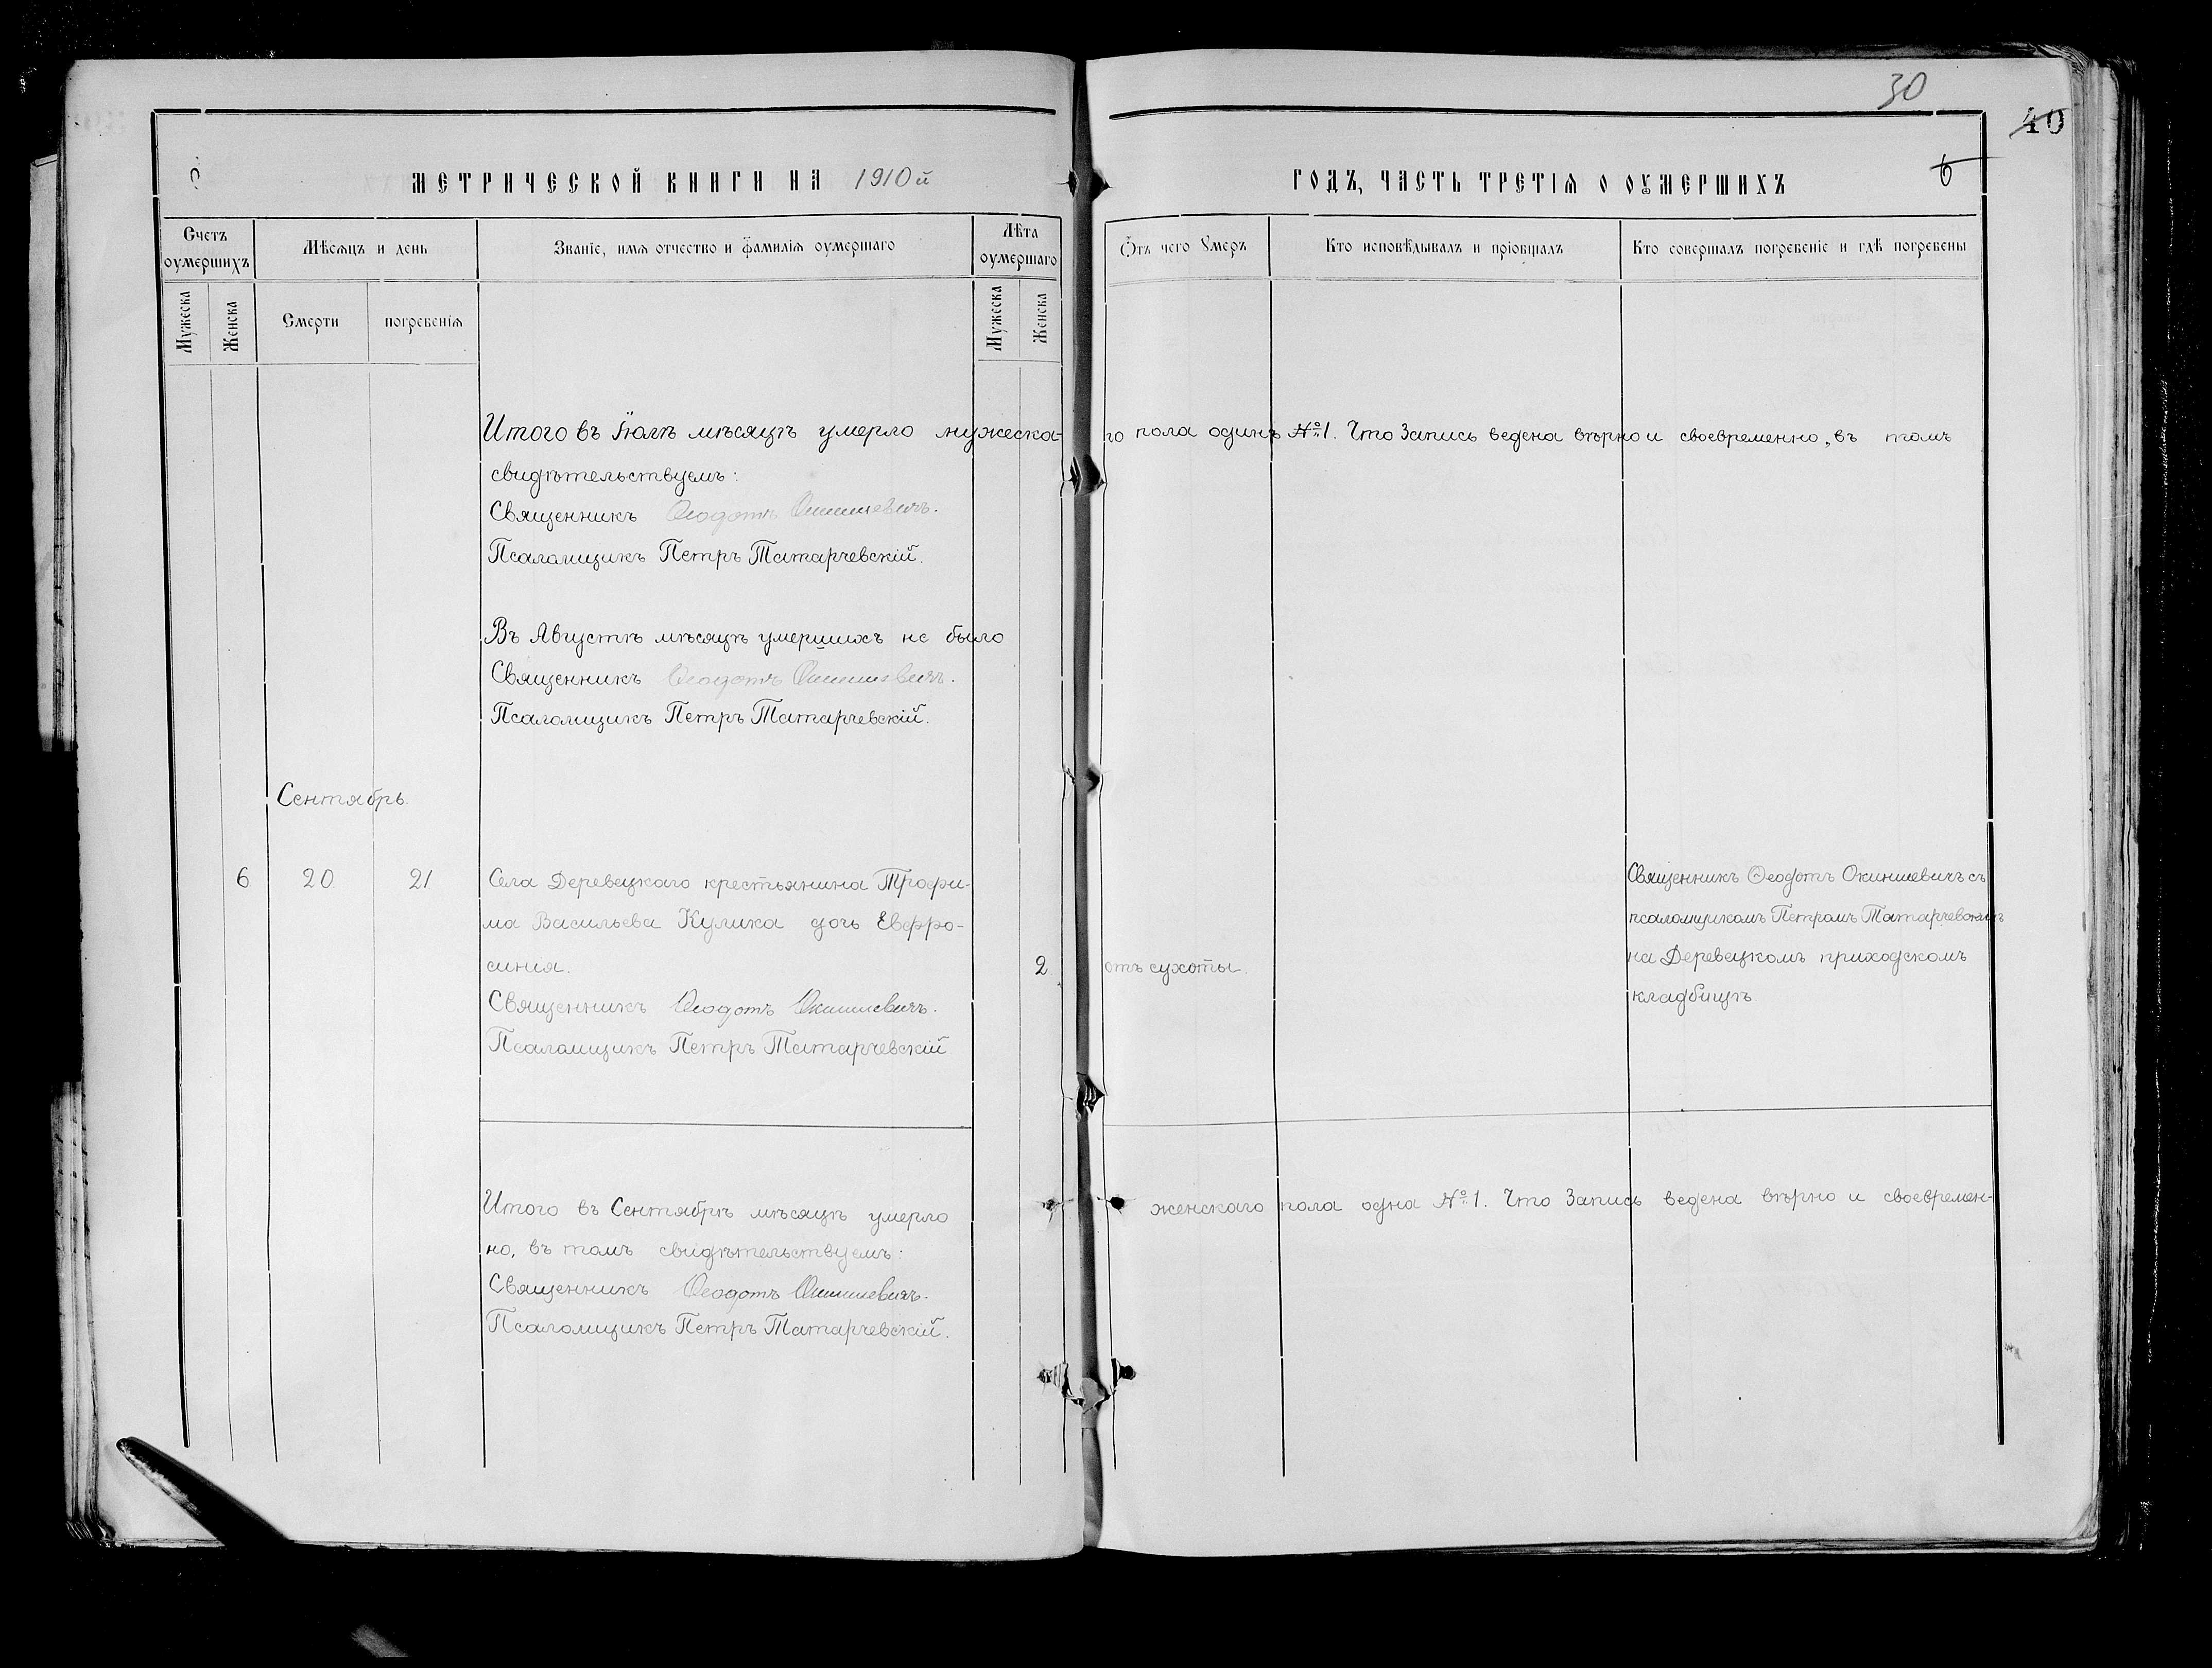 30
40
6
МЕТРИЧЕСКОЙ КНИГИ НА 1910й
ГОДЪ, ЧАСТЬ ТРЕТІѦ О ОУМЕРШИХЪ
Счетъ оумершихъ
Мѣсяцъ и день
Званіе, имѧ отчество и фамиліѧ оумершаго
Лѣта оумершаго
Ѿтъ чего Умеръ
Кто исповѣдывалъ и пріобщалъ
Кто совершалъ погребеніе и гдѣ погребены
Мужеска
Женска
Смерти
погребеніѧ
Мужеска
Женска
Итого въ Іюлѣ мѣсяцѣ умерло мужеска-
го пола одинъ № 1. Что Запись ведена вѣрно и своевременно, въ томъ
свидѣтельствуемъ:
Священникъ Ѳеодотъ Окиншевичъ.
Псаломщикъ Петръ Татарчевскій.
Въ Августѣ мѣсяцѣ умершихъ не было
Священникъ Ѳеодотъ Окиншевичъ.
Псаломщикъ Петръ Татарчевскій.
Сентябрь.
6 20 21
Села Деревецкаго крестьянина Трофи-
ма Васильева Кулика дочь Евфро-
синія.
2
отъ сухоты.
Священникъ Ѳеодотъ Окиншевичъ съ
псаломщикомъ Петромъ Татарчевскимъ
на Деревецкомъ приходскомъ
кладбищѣ
Священникъ Ѳеодотъ Окиншевичъ.
Псаломщикъ Петръ Татарчевскій
Итого въ Сентябрѣ мѣсяцѣ умерло
женскаго пола одна № 1. Что Запись ведена вѣрно и своевремен-
но, въ томъ свидѣтельствуемъ:
Священникъ Ѳеодотъ Окиншевичъ.
Псаломщикъ Петръ Татарчевскій.